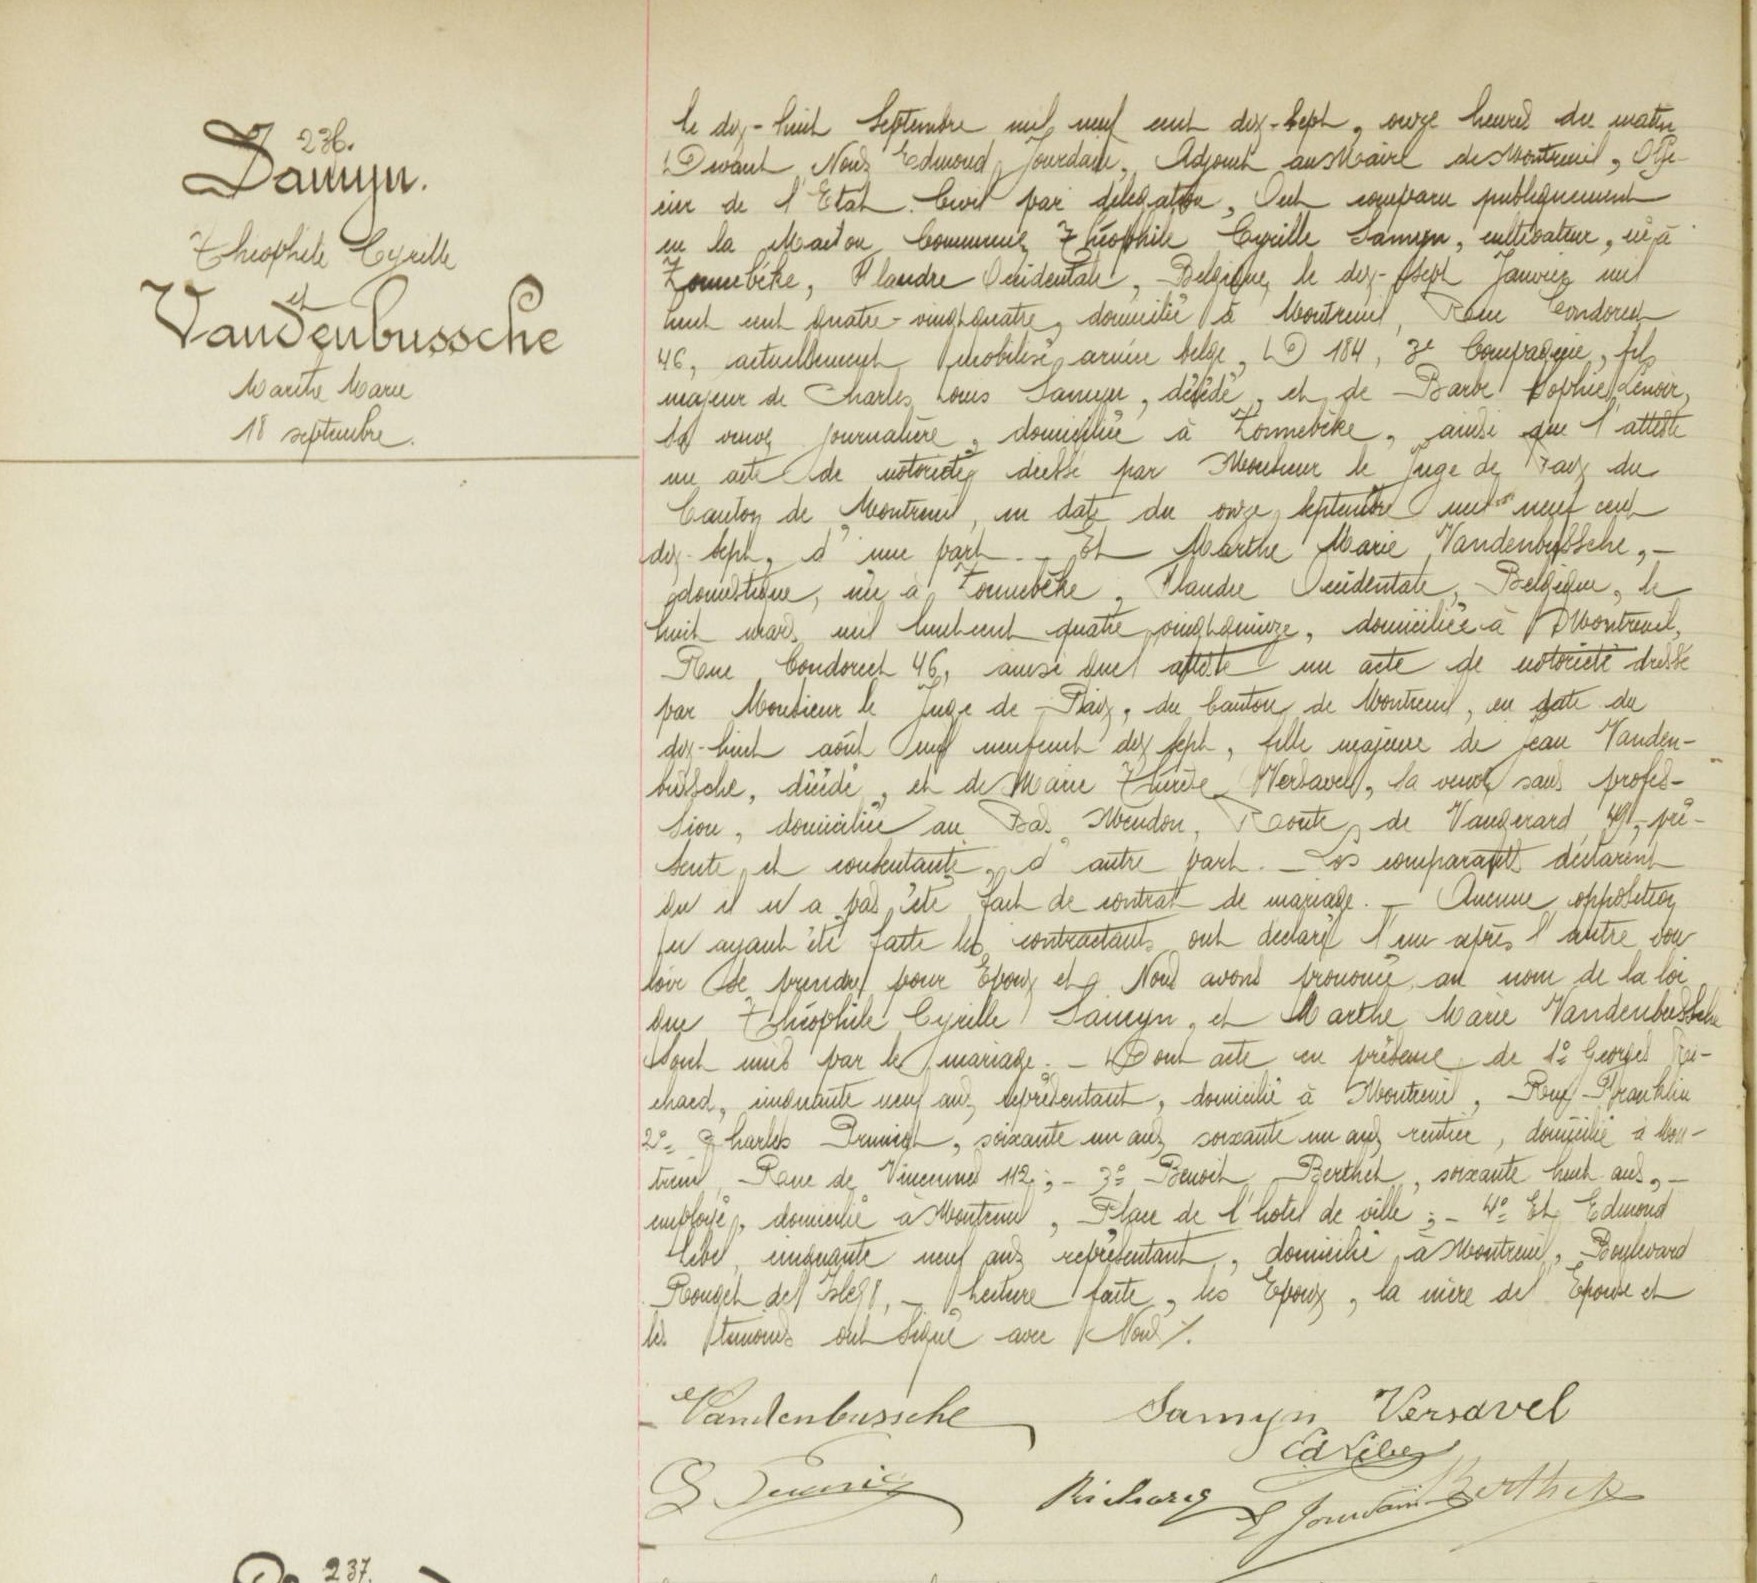 236.
Samyn.
Théophile Cyrille
et
Vandenbussche
Marthe Marie
18 septembre.
Le dix-huit Septembre mil neuf cent dix-sept, onze heures du matin
Devant Nous Edmond Jourdain, Adjoint au Maire de Montreuil, Offi-
cier de l'Etat Civil par délégation, Ont comparu publiquement
en la Maison Commune, Théophile Cyrille Samyn, cultivateur, né à
Zonnebéke, Flandre Occidentale, Belgique, le dix-sept Janvier mil
huit cent quatre-vingt quatre, domicilié à Montreuil, Rue Condorcet
46, actuellement mobilisé armée belge, D 184, 3e Compagnie, fils
majeur de Charles Louis Samyn, décédé, et de Barbe Sophie Lenoir,
sa veuve journalière, domiciliée à Zonnebéke, ainsi que l'atteste
un acte de notoriété dressé par Monsieur le Juge de Paix du
Canton de Montreuil, en date du onze septembre mil neuf cent
dix-sept, d'une part. - Et Marthe Marie Vandenbussche, -
domestique, née à Zonnebéke, Flandre Occidentale, Belgique, le
huit mars mil huit cent quatre vingt quinze, domiciliée à Montreuil,
Rue Condorcet 46, ainsi que l'atteste un acte de notoriété dressé
par Monsieur le Juge de Paix, du Canton de Montreuil, en date du
dix-huit août mil neuf cent dix sept, fille majeure de Jean Vanden-
bussche, décédé, et de Marie Thérèse Versavel, sa veuve sans profes-
sion, domiciliée au Bas Meudon, Route de Vaugirard 49, pré-
sente et consentante, d'autre part. - Les comparants déclarent
qu'il n'a pas été fait de contrat de mariage. - Aucune opposition
n'ayant été faite les contractants ont déclaré l'un après l'autre vou
loir se prendre pour Epoux et Nous avons prononcé au nom de la loi
que Théophile Cyrille Samyn, et Marthe Marie Vandenbussche
sont unis par le mariage. - Dont acte en présence de 1° Georges Ri-
chard, cinquante neuf ans, représentant, domicilié à Montreuil, Rue Franklin
2° Charles soixante un ans, soixante un ans rentier, domicilié à Mon-
treuil, Rue de Vincennes 112; - 3° Benoit Berthet, soixante huit ans, -
employé, domicilié à Montreuil, Place de l'hotel de ville; - 4° Et Edmond
Libe, cinquante neuf ans représentant, domicilié à Montreuil, Boulevard
Rouget de l'Isle, - Lecture faite, les Epoux, la mère de l'Epouse et
les témoins ont signé avec Nous %.
Vandenbussche Samyn Versavel
Ed Libe
Richard E Jourdain Berthet
237.